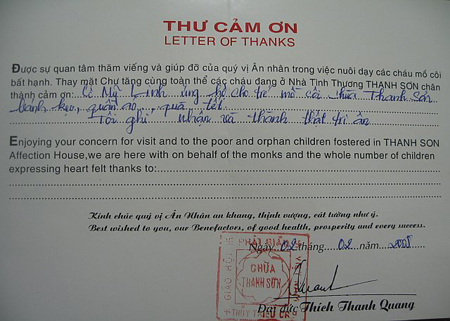 THƯ CẢM ƠN
LETTER OF THANKS
Được sự quan tâm thăm viếng và giúp đỡ của quý vị Ân nhân trong việc nuôi dạy các cháu mồ côi
bất hạnh. Thay mặt Chư tăng cùng toàn thể các cháu đang ở Nhà Tình Thương THANH SƠN chân
thành cảm ơn: Cô Mỹ Linh ủng hộ cho trẻ mồ côi chùa Thanh Sơn
bánh kẹo, quần áo, quà tết.
Tôi ghi nhận và thành thật tri ân
Enjoying your concern for visit and to the poor and orphan children fostered in THANH SƠN
Affection House,we are here with on behalf of the monks and the whole number of children
expressing heart felt thanks to:
Kính chúc quý vị Ân Nhân an khang, thịnh vượng, cát tường như ý.
Best wished to you, our Benefactors, of good health, prosperity and every success.
Ngày 02 tháng 02 năm 2005
PHẬT GIÁO
CHÙA
THANH SƠN
Đại đức Thích Thanh Quang